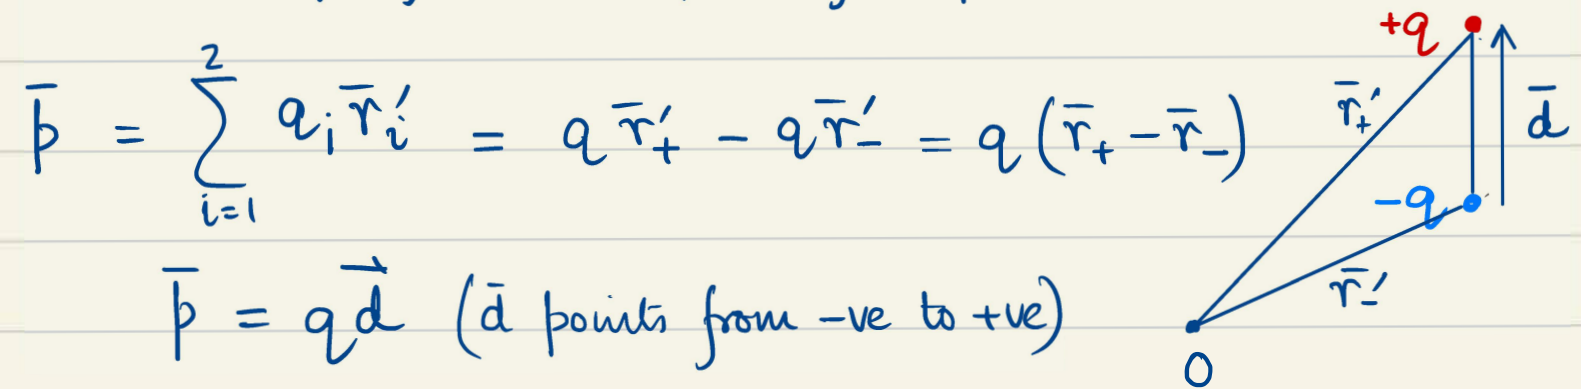 p̄ = ∑_{i=1}^{2} q_i r̄_i′ = q r̄₊′ − q r̄₋′ = q (r̄₊ − r̄₋)
p̄ = q d⃗ (d̄ points from -ve to +ve)
+q
r̄₊′
d̄
−q
r̄₋′
O